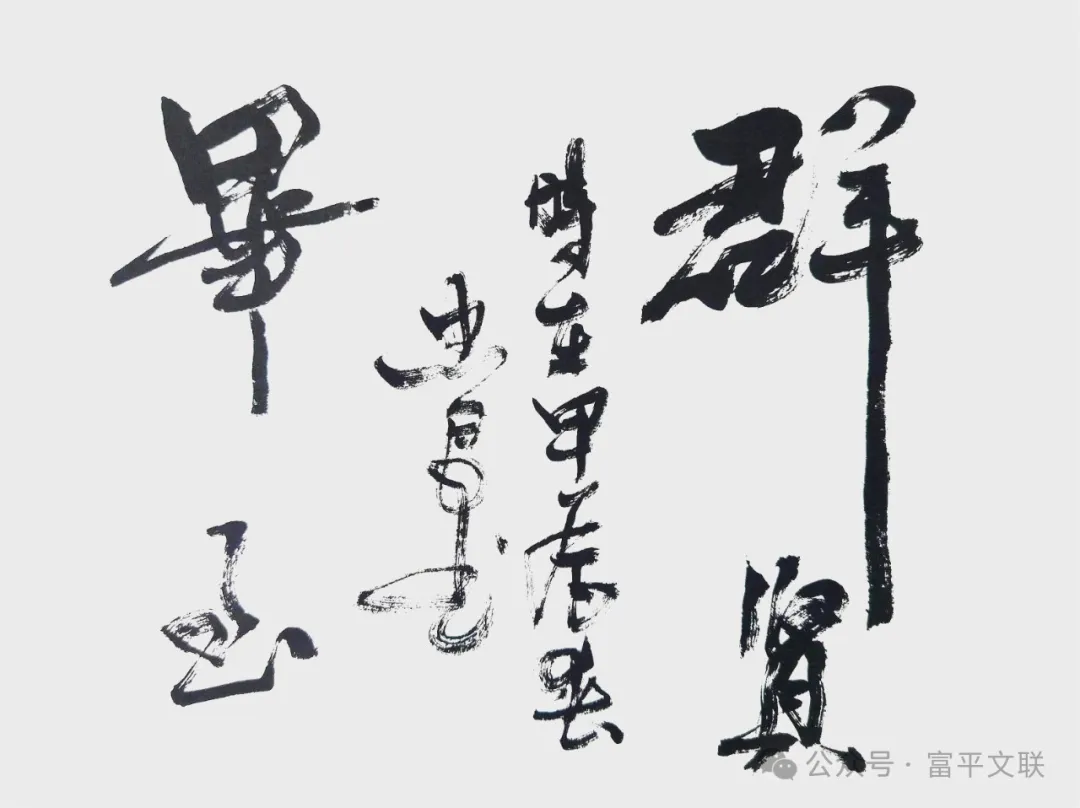 群贤
時在甲辰春
畢至
公众号·富平文联